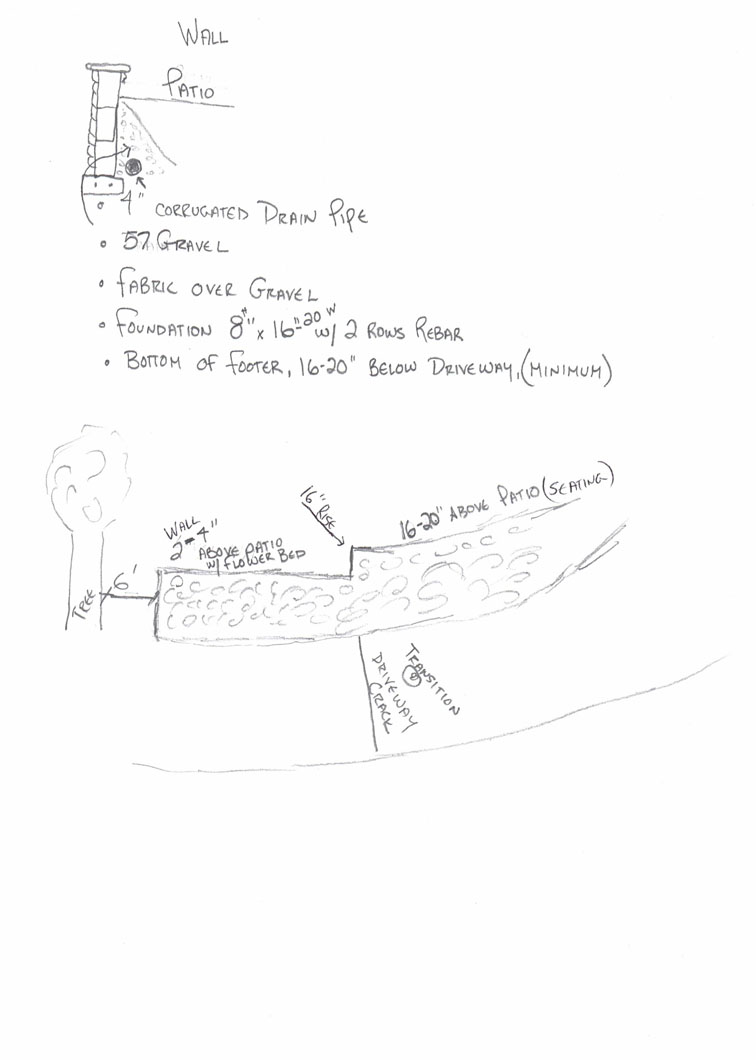 WALL
PATIO
4" CORRUGATED DRAIN PIPE
• 57 GRAVEL
• FABRIC OVER GRAVEL
• FOUNDATION 8"H x 16"-20"W w/ 2 ROWS REBAR
• BOTTOM OF FOOTER, 16-20" BELOW DRIVEWAY, (MINIMUM)
16" RISE
16-20" ABOVE PATIO (SEATING)
WALL
2-4"
ABOVE PATIO
w/ FLOWER BED
6'
TREE
TRANSITION
@
DRIVEWAY
CRACK